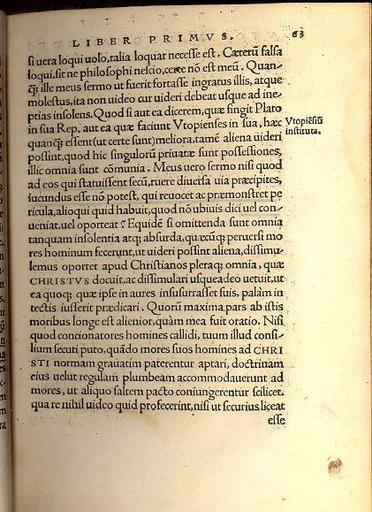 LIBER PRIMVS. 63
si uera loqui uolo, talia loquar necesse est. Cæterū falsa
loqui, sit ne philosophi nescio, certe nō est meū. Quan-
ille meus sermo ut fuerit fortasse ingratus illis, atque
molestus, ita non uideo cur uideri debeat usque ad ine-
ptias insolens. Quod si aut ea dicerem, quæ fingit Plato
in sua Rep. aut ea quæ faciunt Vtopienses in sua, hæc
Vtopiēsiū
instituta.
essent (ut certe sunt) meliora, tamē aliena uideri
possint, quod hic singulorū priuatæ sunt possessiones,
illic omnia sunt cōmunia. Meus uero sermo nisi quod
ad eos qui statuissent secū, ruere diuersa uia præcipites,
iucundus esse nō potest, qui reuocet ac præmonstret pe
ricula, alioqui quid habuit, quod nō ubiuis dici uel con-
ueniat, uel oporteat? Equidē si omittenda sunt omnia
tanquam insolentia atq; absurda, quæcūq; peruersi mo
res hominum fecerunt, ut uideri possint aliena, dissimu-
lemus oportet apud Christianos pleraq; omnia, quæ
CHRISTVS docuit, ac dissimulari usqueadeo uetuit, ut
ea quoq; quæ ipse in aures insusurrasset suis, palàm in
tectis iusserit prædicari. Quorū maxima pars ab istis
moribus longe est alienior, quàm mea fuit oratio. Nisi
quod concionatores homines callidi, tuum illud consi-
lium secuti puto, quādo mores suos homines ad CHRI
STI normam grauatim paterentur aptari, doctrinam
eius uelut regulam plumbeam accommodauerunt ad
mores, ut aliquo saltem pacto coniungerentur scilicet.
qua re nihil uideo quid profecerint, nisi ut securius liceat
esse